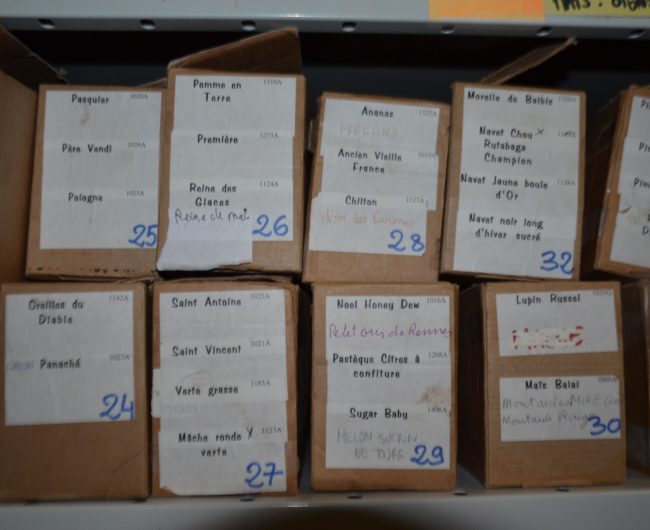 Pasquier 1020A
Père Vendi 1026A
Pologne 1023A
25
Pomme en 1310A
Terre
Première 1273A
Reine des 1124A
Glaces
Reine de mai
26
Ananas 1327A
MELONS
Ancien Vieille 1019A
France
Chilton 1127A
28
Morelle de Balbis 1320A
Navet Chou x
Rutabaga
Champion
Navet Jaune boule 1128A
d'Or
Navet noir long
d'hiver sucré
32
Oreilles du 1142A
Diable
Panaché 1027A
24
Saint Antoine 1025A
Saint Vincent 1021A
Verte grasse 1185A
Mâche ronde y 1123A
verte
27
Noel Honey Dew 1016A
Petit gris de Rennes
Pastèque Citres à 1288A
confiture
Sugar Baby 1408A
MELON SUCRIN
DE TOURS
29
Lupin Russel 1031G
Maïs Balaï 1069A
Moutarde MIKE
Moutarde Rouge
30